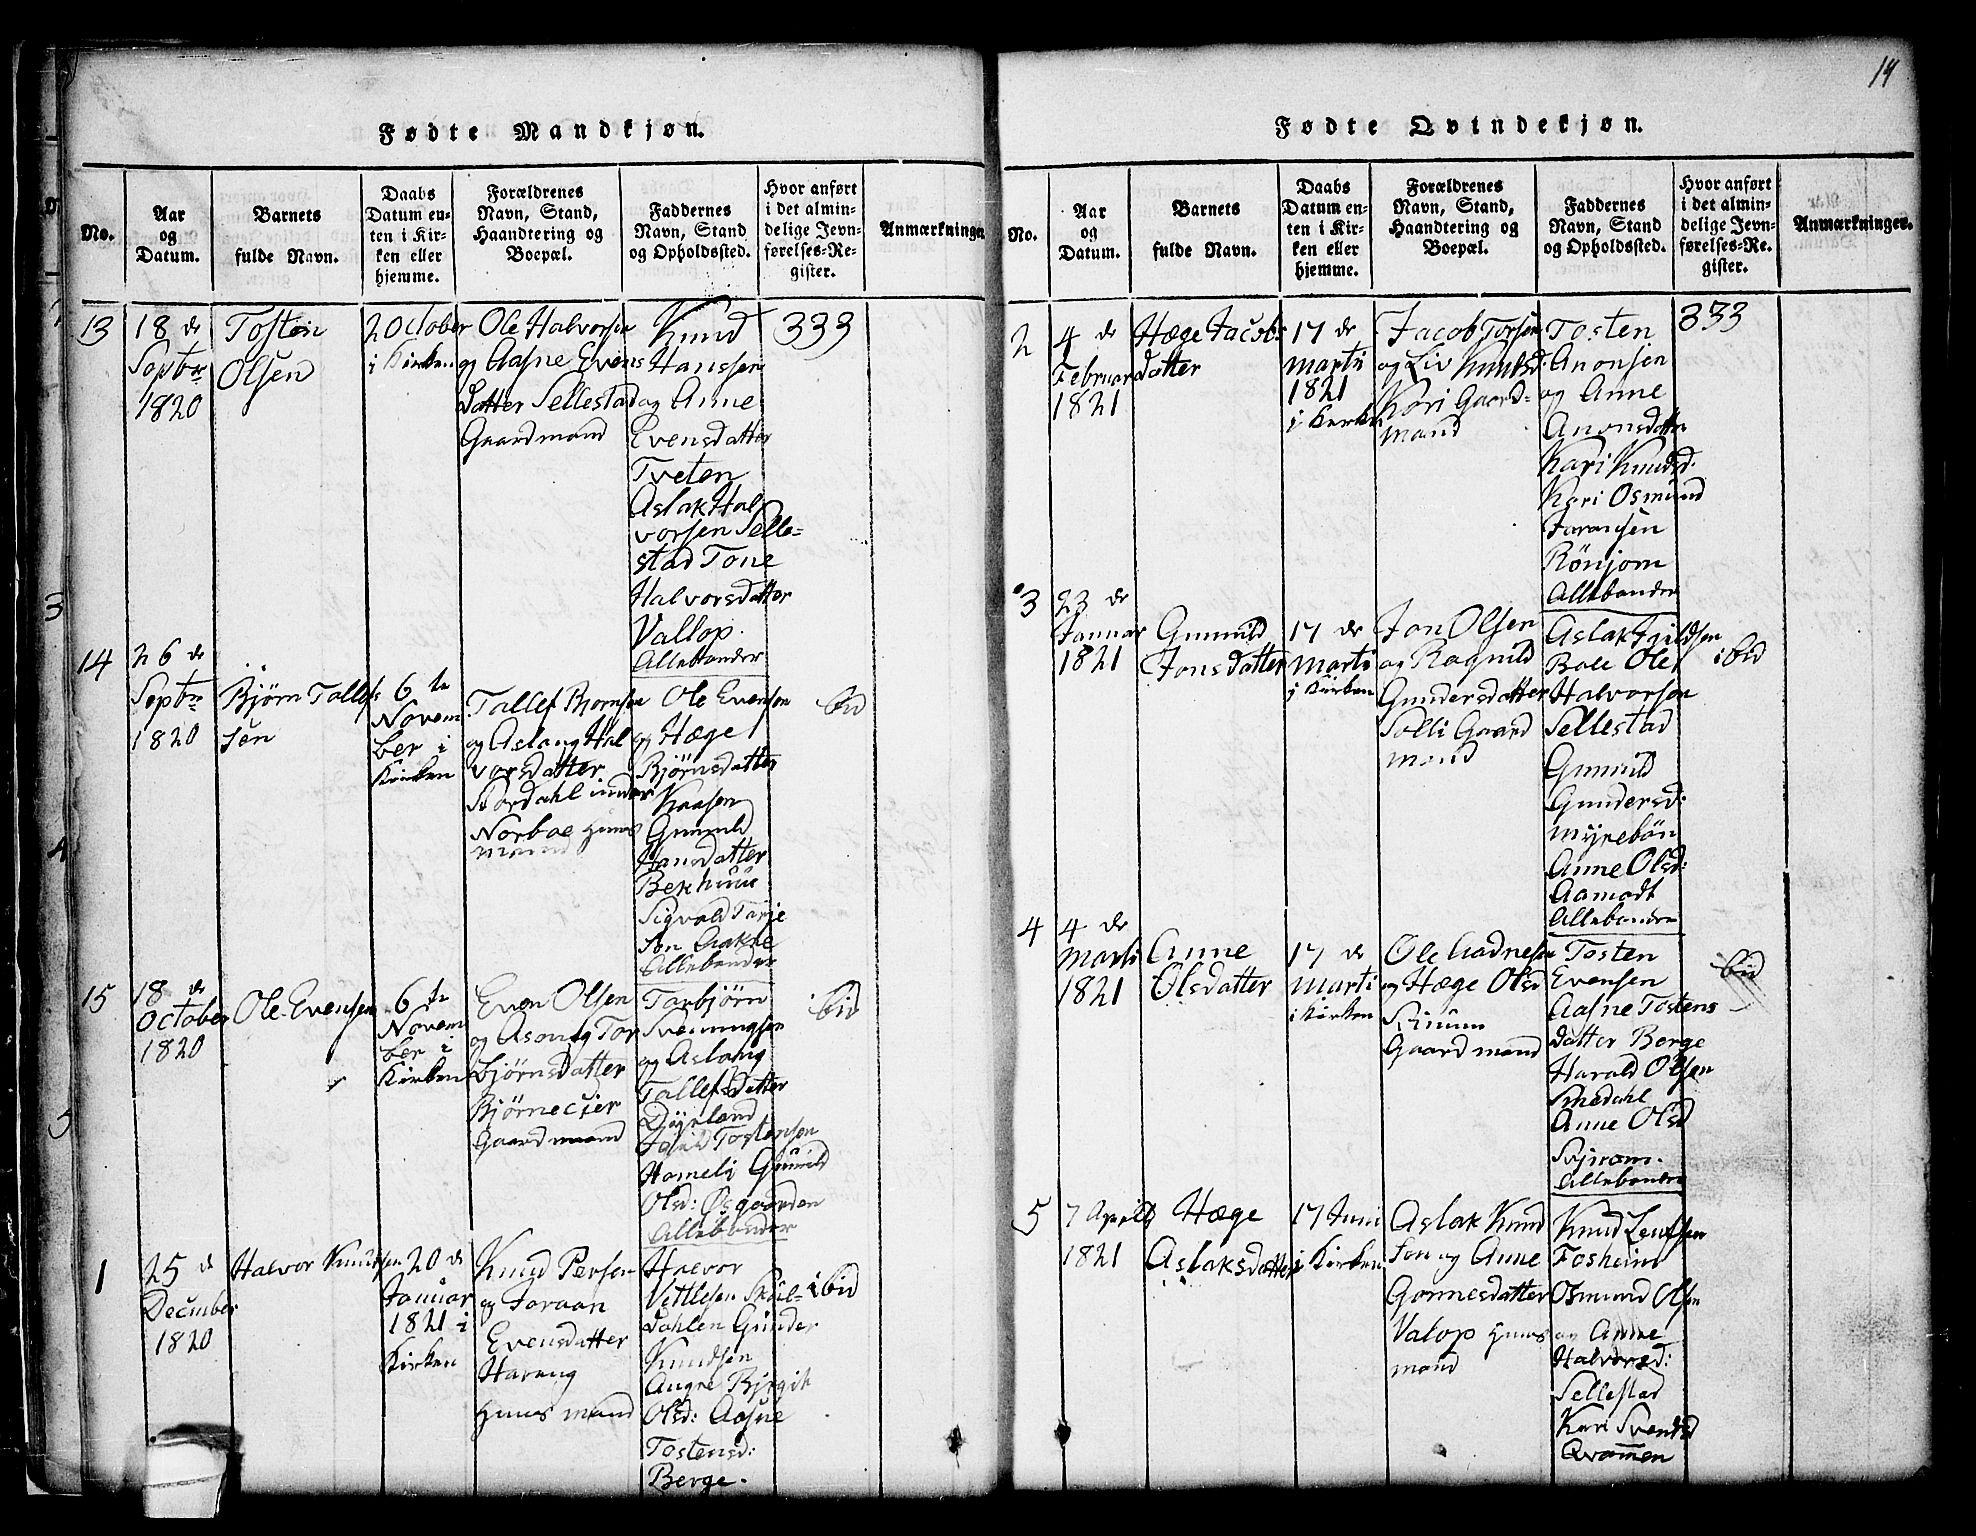 14
Fødte Mandkjøn.
No.
Aar
og
Datum.
Barnets
fulde Navn.
Daabs
Datum en-
ten i Kir-
ken eller
hjemme.
Forældrenes
Navn, Stand,
Haandtering og
Boepæl.
Faddernes
Navn, Stand
og Opholdssted.
Hvor anført
i det almin-
delige Jevn-
førelses-Re-
gister.
Anmærkninge
13
18 de
Septbr
1820
Tosten
Olsen
2 October
i Kirken
Ole Halvorsen
og Aasne Evens
Datter Sellestad
Gaardmand
Knud
Hanssen
og Anne
Evensdatter
Tveten
Aslak Hal
vorsen Selle=
stad Tone
Halvorsdatter
Vallop.
Allebønder
333
14
26 de
Septbr
1820
Bjørn Tallefs
sen
6 te
Novem
ber i
Kirken
Tallef Bjornsen
og Aslaug Hal
vorsdatter
Stordahl under
Norboe Huus
mand
Ole Evensen
og Hæge
Bjørnsdatter
Kaasen
Gunuld
Hansdatter
Bekhuus
Sigvald Tarje
Søn
Allebønder
ibid
15
18 de
October
1820
Ole Evensen
6 te
Novem
ber i
Kirken
Even Olsen
og Asong Tor
bjørnsdatter
Gaardmand
Torbjørn
Svenungsen
og Aslaug
Tallefsdatter
Dyrland
Tostensen
Hameli Gunild
Olsd: Øsgaarden
Allebønder
ibid
1
25 d
December
1820
Halvor Knudsen
20 de
Januar
1821 i
Kirken
Knud Persen
og Joraan
Evensdatter
Haraug
Huusmand
Halvor
Vettlesen Skul-
dahlen Gunder
Knudsen
Birgith
Olsd: Aasne
Tostensd:
Berge.
ibid
Fødte Qvindekjøn.
No.
Aar
og
Datum.
Barnets
fulde Navn.
Daabs
Datum en-
ten i Kir-
ken eller
hjemme.
Forældrenes
Navn, Stand,
Haandtering og
Boepæl.
Faddernes
Navn, Stand
og Opholdssted.
Hvor anført
i det almin-
delige Jevn-
førelses-Re-
gister.
Anmærkninger.
2
4 de
Februar
1821
Hæge Jacobs
datter
17 de
Marti
1821
i Kirken
Jacob Torsen
og Liv Knudsd:
Kori Gaard=
mand
Tosten
Anonsen
og Anne
Anonsdatter
Kari Knudsd.
Kori Osmund
Joransen
Rønjom
Allebønder
333
3
23 de
Januar
1821
Gunuld
Jonsdatter
17 de
Marti
i Kirken
Jon Olsen
og Ragnild
Gundersdatter
Solli Gaard
mand
Aslak Egildsen
Boe Ole
Halvorsen
Sellestad
Gunuld
Gundersd:
Myrebøn
Anne Olsd:
Aamodt
Allebønder
ibid
4
4 de
Marti
1821
Anne
Olsdatter
17 de
Marti
i Kirken
Ole Aadnesen
og Hæge Olsd
Gaardmand
Tosten
Evensen
Aasne Tostens
datter Berge
Harald Olsen
Smedahl
Anne Olsd
Allebønder
ibid
5
7 Aprili
1821
Hæge
Aslaksdatter
17 Juni
i Kirken
Aslak Knud
sen og Anne
Gonnesdatter
Valop Huus
mand
Knud Leufsen
Fosheim
Osmund Olsen
og Anne
Halvorsd:
Sellestad
Kari Svendsd
Qvammen